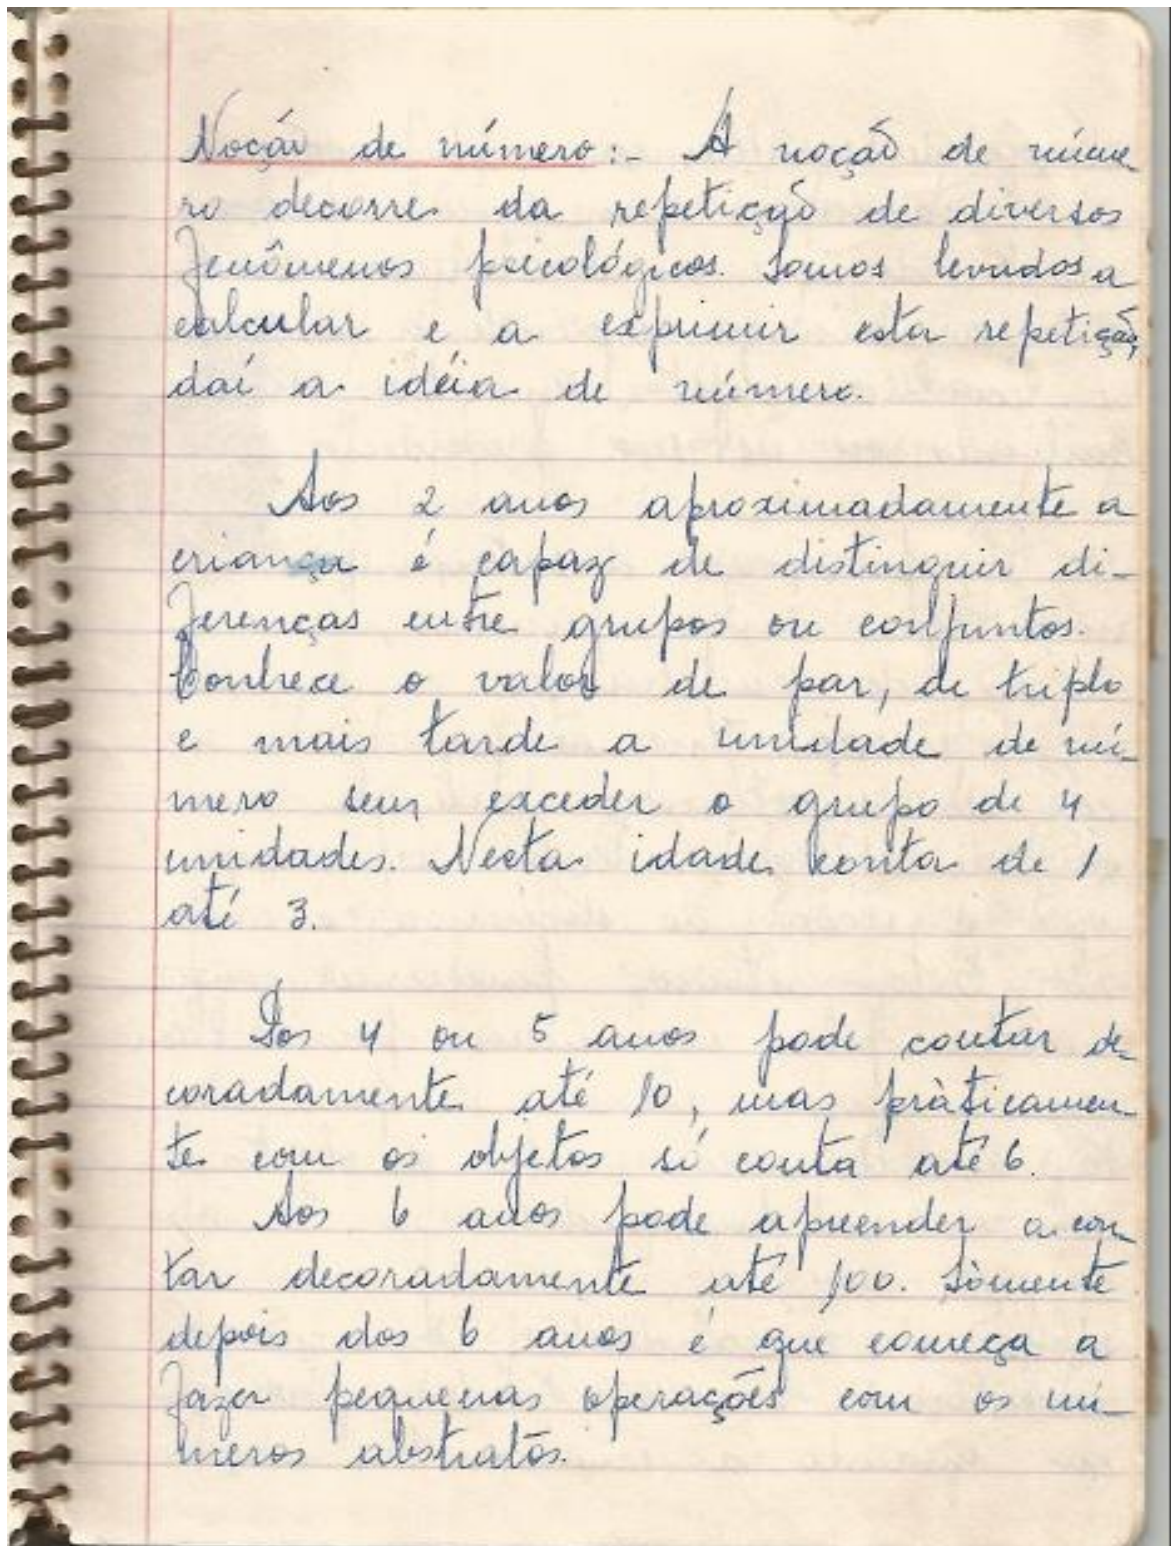 Noção de número:- A noção de núme
ro decorre da repetição de diversos
fenômenos psicológicos. Somos levados a
calcular e a exprimir esta repetição,
daí a idéia de número.
Aos 2 anos aproximadamente a
criança é capaz de distinguir di-
ferenças entre grupos ou conjuntos.
Conhece o valor de par, de triplo
e mais tarde a unidade de nú-
mero sem exceder o grupo de 4
unidades. Nesta idade conta de 1
até 3.
Aos 4 ou 5 anos pode contar de-
coradamente até 10, mas pràticamen-
te com os objetos só conta até 6.
Aos 6 anos pode apreender a con-
tar decoradamente até 100. Sòmente
depois dos 6 anos é que começa a
fazer pequenas operações com os nú-
meros abstratos.